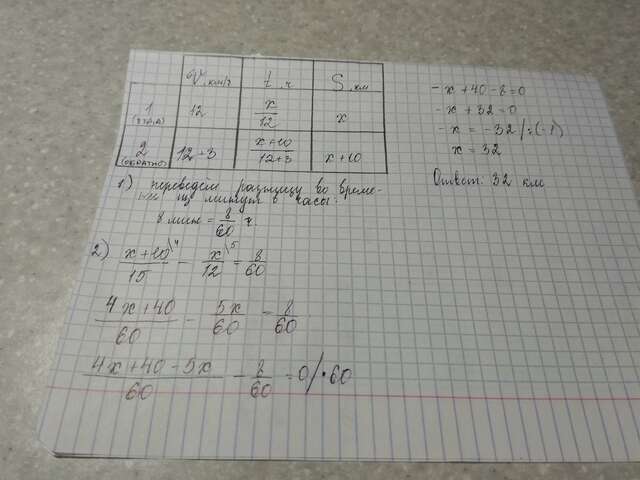 V км/ч t ч S км
1 (туда) 12 x/12 x
2 (обратно) 12+3 x+10/12+3 x+10
1) переведём разницу во време-
ни из минут в часы:
8 мин = 8/60 ч.
2) x+10\4/15 - x\5/12 = 8/60
4x+40/60 - 5x/60 = 8/60
4x+40-5x/60 - 8/60 = 0/·60
-x+40-8=0
-x+32=0
-x=-32/:(-1)
x=32
Ответ: 32 км